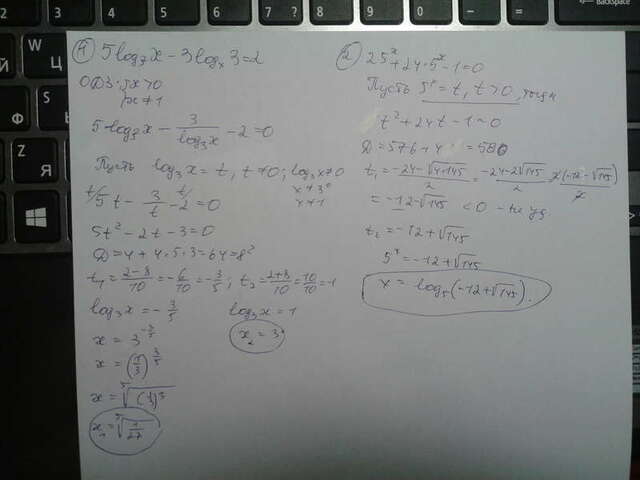 ① 5log₃x − 3logₓ3 = 2
ОДЗ: x>0
x≠1
5log₃x − 3/log₃x − 2 = 0
Пусть log₃x = t, t≠0; log₃x≠0
x≠3⁰
x≠1
5t − 3/t − 2 = 0
5t² − 2t − 3 = 0
D = 4 + 4·5·3 = 64 = 8²
t₁ = (2−8)/10 = −6/10 = −3/5; t₂ = (2+8)/10 = 10/10 = 1
log₃x = −3/5
log₃x = 1
x = 3^(−3/5)
x₂ = 3
x = (1/3)^(3/5)
x = ⁵√(1/3)³
x₁ = ⁵√(1/27)
② 25ˣ + 24·5ˣ − 1 = 0
Пусть 5ˣ = t, t>0, тогда
t² + 24t − 1 = 0
D = 576 + 4 = 580
t₁ = (−24−√(4·145))/2 = (−24−2√145)/2 = 2(−12−√145)/2
= −12−√145 <0 - не уд
t₂ = −12+√145
5ˣ = −12+√145
x = log₅(−12+√145).